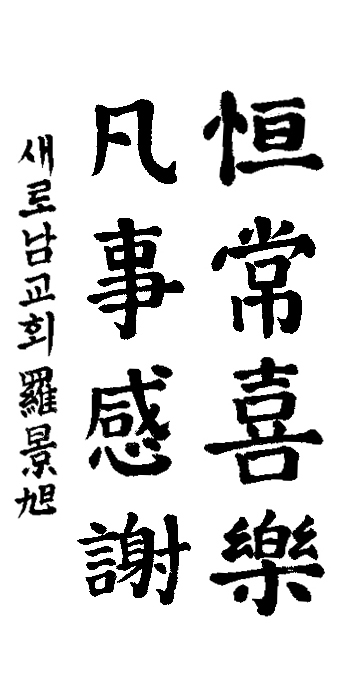 恒常喜樂
凡事感謝
새로남교회 羅景旭